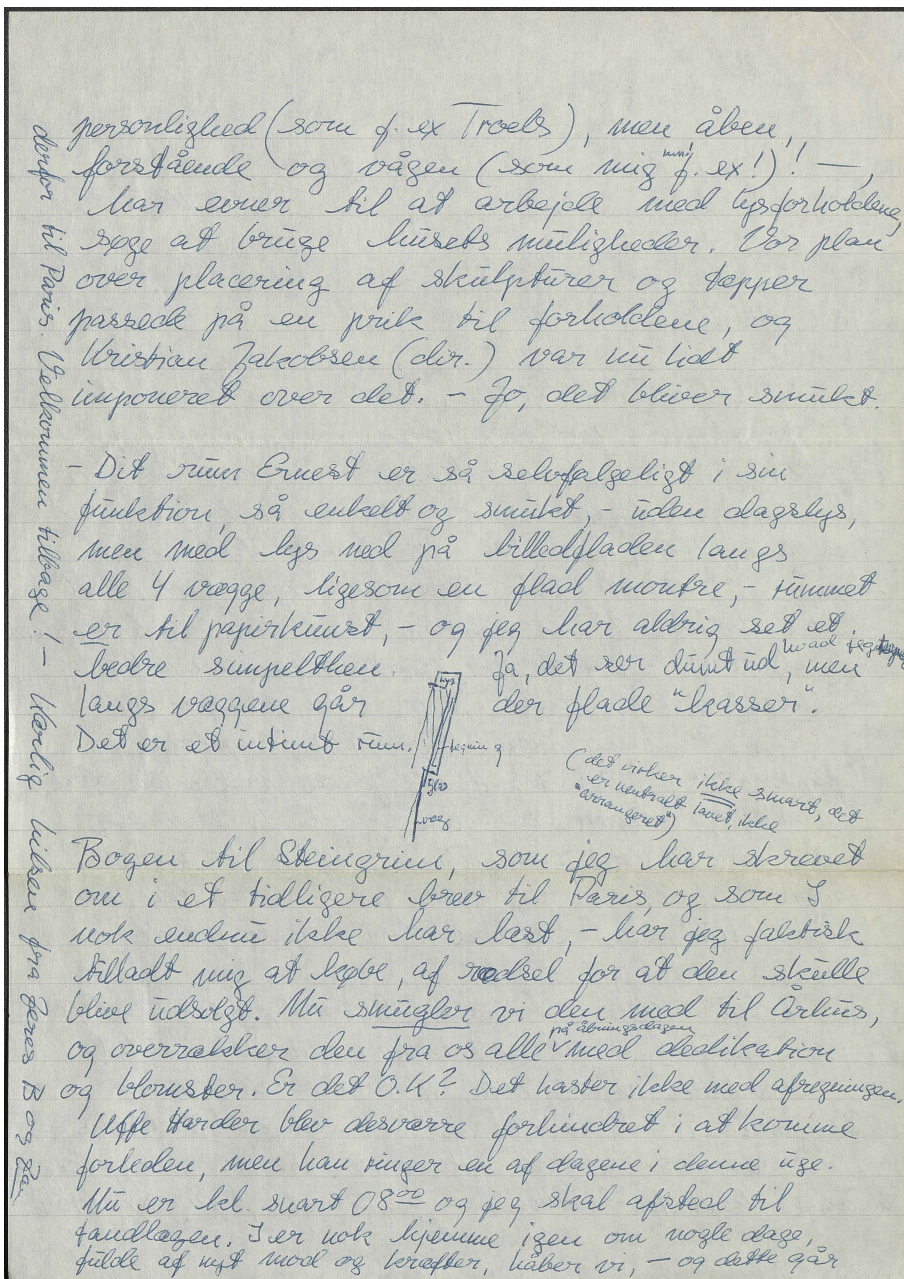 personlighed (som f. ex Troels), men åben,
forstående og vågen (som mig f. ex!)! —,
har evner til at arbejde med lysforholdene,
søge at bruge husets muligheder. Vor plan
over placering af skulpturer og tæpper
passede på en prik til forholdene, og
Kristian Jakobsen (dir.) var nu lidt
imponeret over det. – Jo, det bliver smukt.
– Dit rum Ernest er så selvfølgeligt i sin
funktion, så enkelt og smukt, – uden dagslys,
men med lys ned på billedfladen langs
alle 4 vægge, ligesom en flad montre, – rummet
er til papirkunst, – og jeg har aldrig set et
bedre simpelthen. Ja, det ser dumt ud, hvad jeg men
langs væggene går der flade "kasser".
Det er et intimt rum.
lys
tegning
glas
væg
(det virker ikke smart, det
er neutralt lavet, ikke
"arrangeret")
Bogen til Steingrim, som jeg har skrevet
om i et tidligere brev til Paris, og som I
nok endnu ikke har læst, – har jeg faktisk
tilladt mig at købe, af rædsel for at den skulle
blive udsolgt. Nu smugler vi den med til Århus,
og overrækker den fra os alle på åbningsdagen med dedikation
og blomster. Er det O.K? Det haster ikke med afregningen.
Uffe Harder blev desværre forhindret i at komme
forleden, men han ringer en af dagene i denne uge.
Nu er kl. snart 08⁰⁰ og jeg skal afsted til
tandlægen. I er nok hjemme igen om nogle dage,
fulde af nyt mod og kræfter, håber vi, – og dette går
derfor til Paris. Velkommen tilbage! – Kærlig hilsen fra Jeres B og